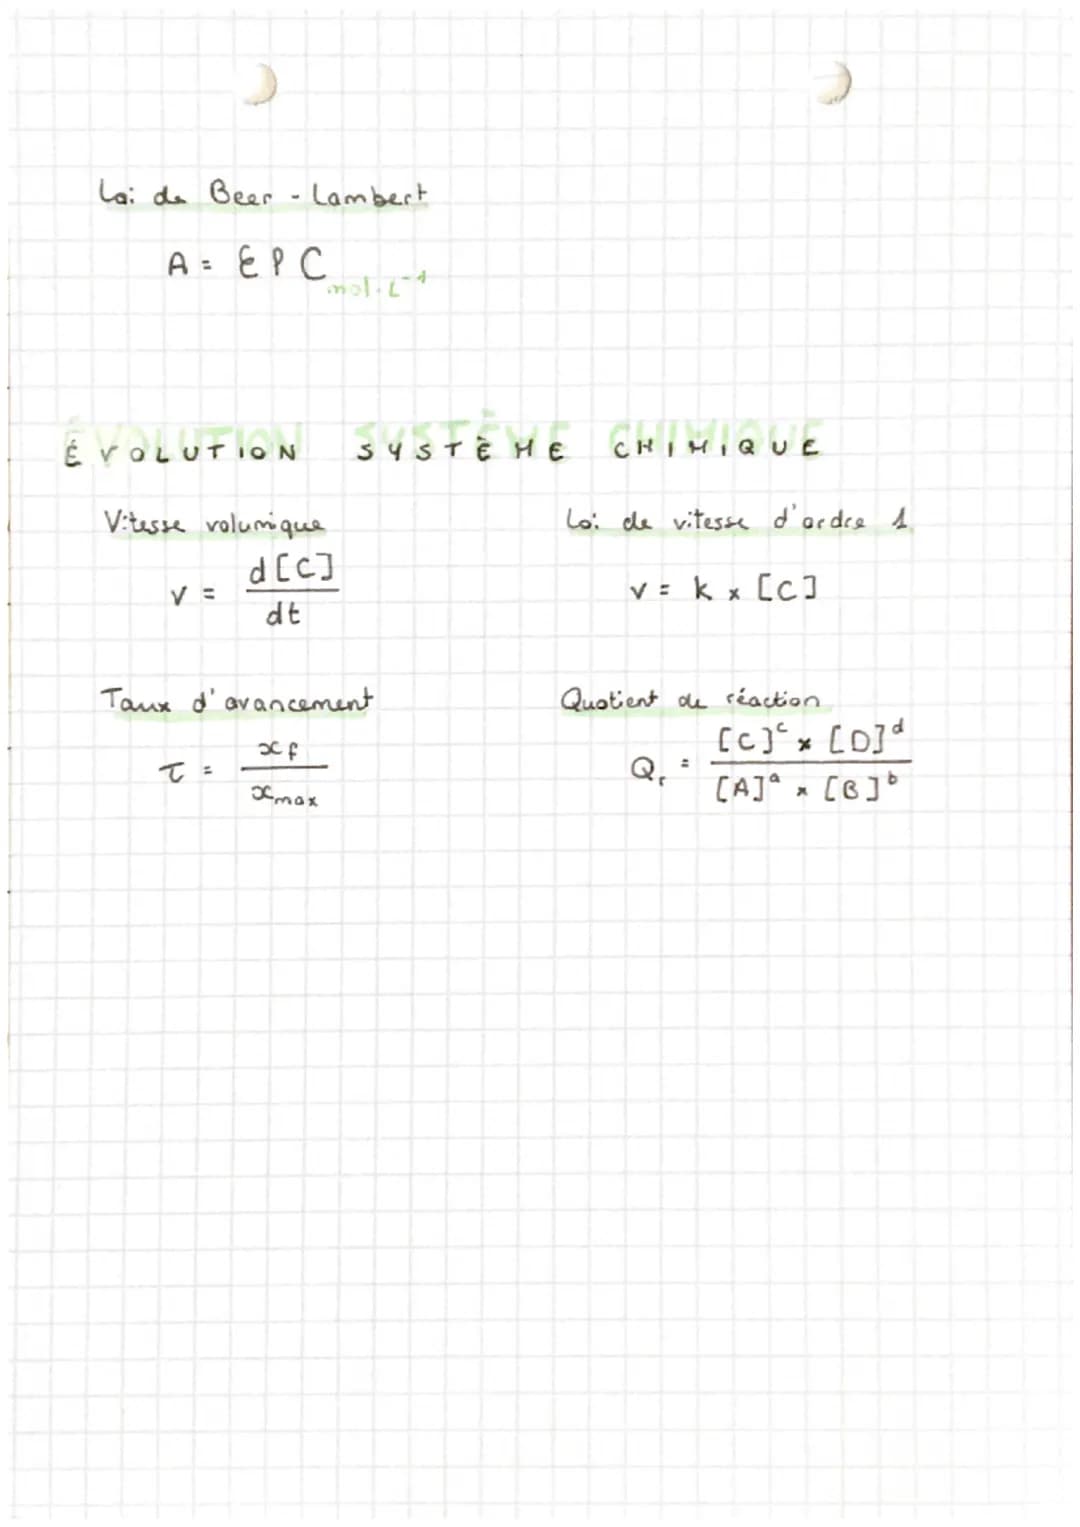 Loi de Beer - Lambert
A = ε l C mol.L⁻¹
ÉVOLUTION SYSTÈME CHIMIQUE
Vitesse volumique
v = d[C] / dt
Loi de vitesse d'ordre 1
v = k × [C]
Taux d'avancement
τ = xf / xmax
Quotient de réaction
Qr = [C]ᶜ × [D]ᵈ / [A]ᵃ × [B]ᵇ